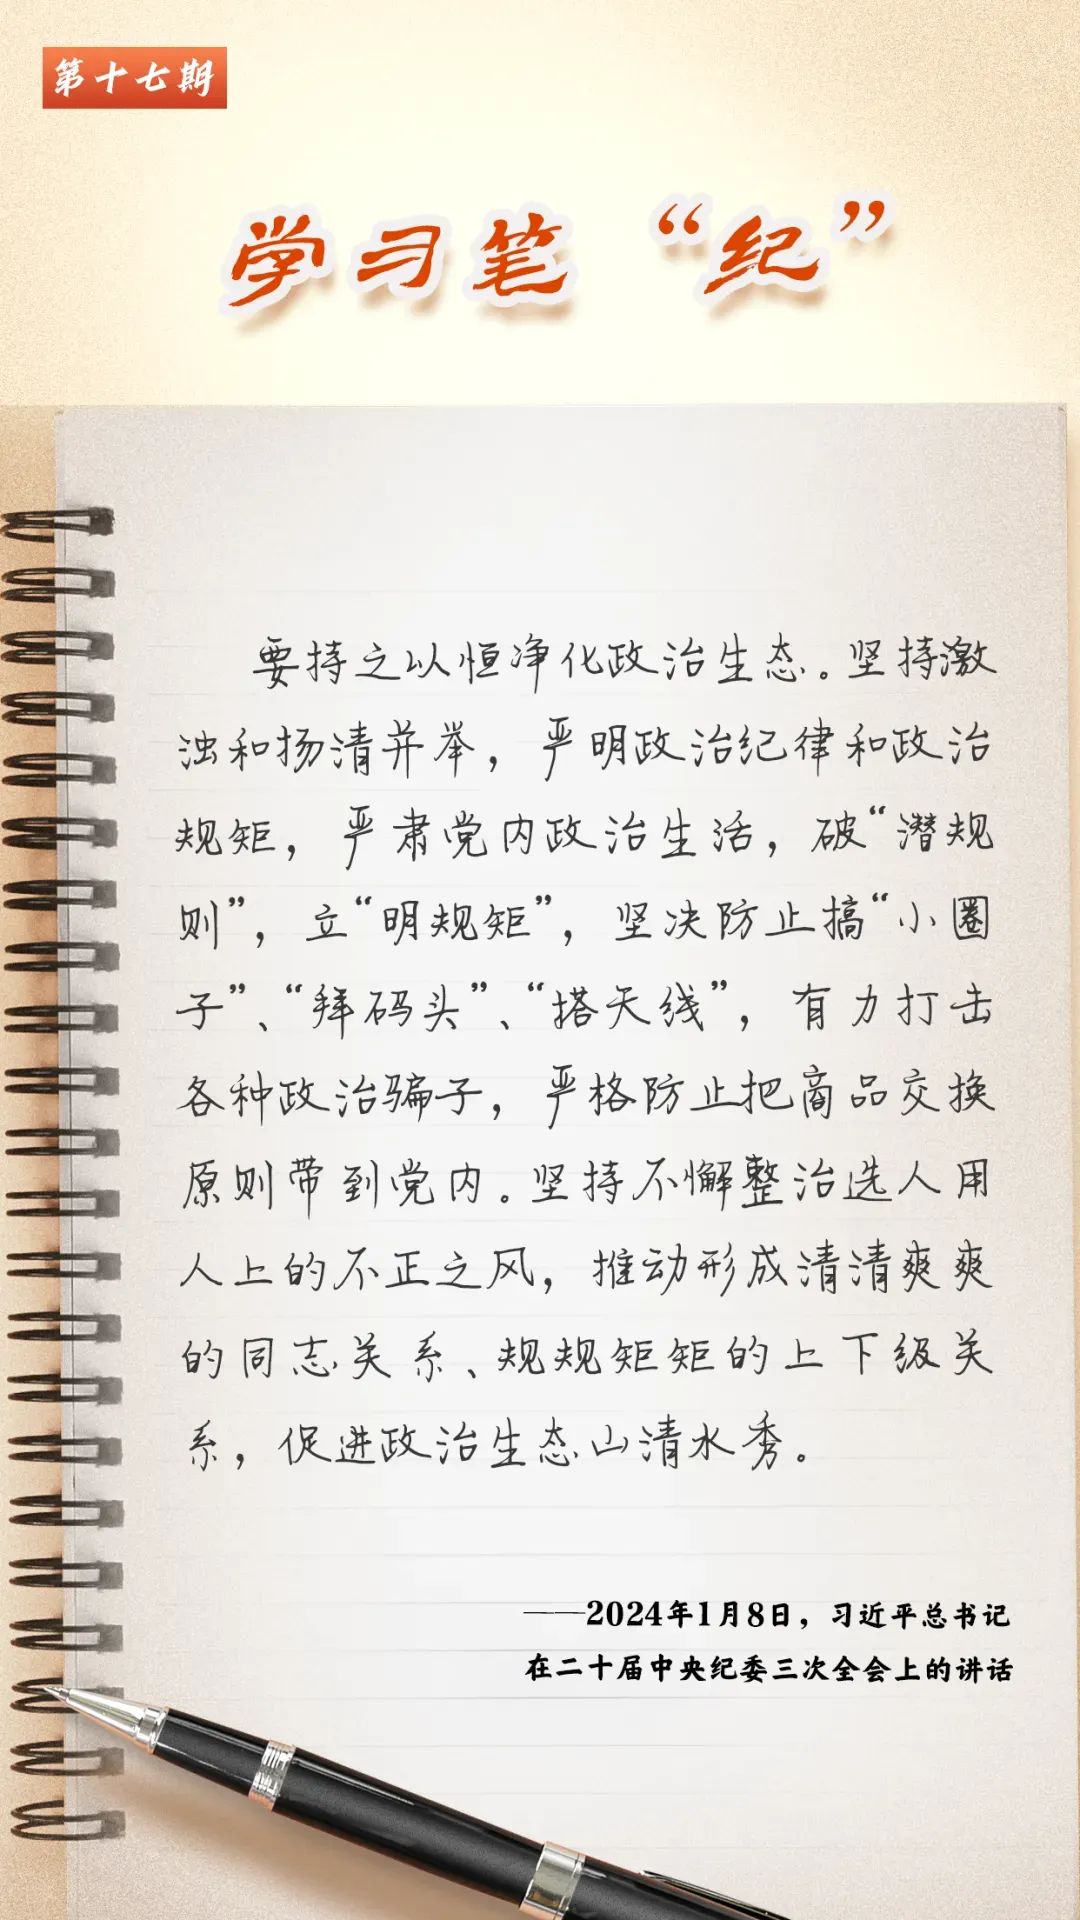 第十七期
学习笔“纪”
要持之以恒净化政治生态。坚持激
浊和扬清并举，严明政治纪律和政治
规矩，严肃党内政治生活，破“潜规
则”，立“明规矩”，坚决防止搞“小圈
子”、“拜码头”、“搭天线”，有力打击
各种政治骗子，严格防止把商品交换
原则带到党内。坚持不懈整治选人用
人上的不正之风，推动形成清清爽爽
的同志关系、规规矩矩的上下级关
系，促进政治生态山清水秀。
——2024年1月8日，习近平总书记
在二十届中央纪委三次全会上的讲话